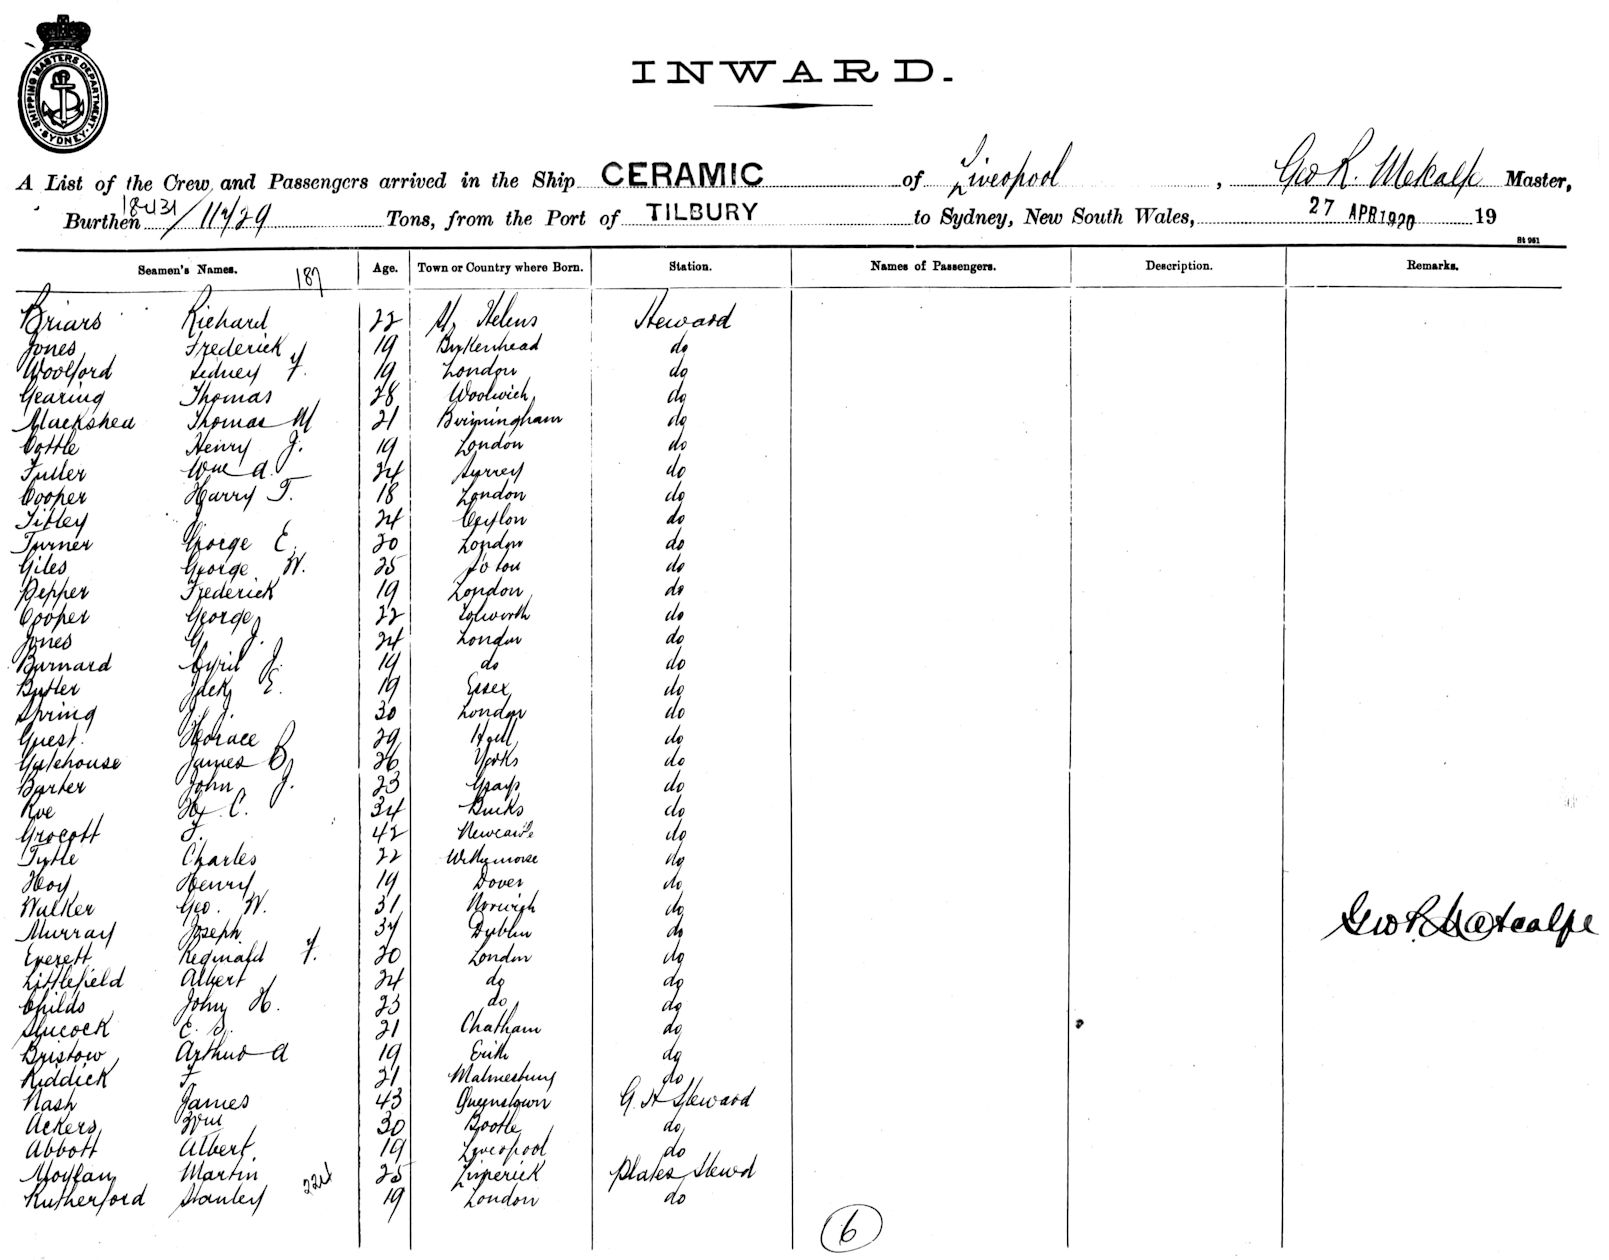 SHIPPING MASTERS DEPARTMENT. SYDNEY.
INWARD.
A List of the Crew and Passengers arrived in the Ship CERAMIC of Liverpool, Geo R. Metcalfe Master,
Burthen 18431/11729 Tons, from the Port of TILBURY to Sydney, New South Wales, 27 APR 1920 19
St 961
Seamen's Names. 187 Age. Town or Country where Born. Station. Names of Passengers. Description. Remarks.
Briars Richard 22 St. Helens Steward
Jones Frederick 19 Birkenhead do
Woolford Sidney F. 19 London do
Gearing Thomas 28 Woolwich do
Mackshea Thomas M 21 Birmingham do
Cottle Henry J. 19 London do
Fuller Wm A. 24 Surrey do
Cooper Harry T. 18 London do
Titley 24 Ceylon do
Turner George E. 20 London do
Giles George W. 25 do
Pepper Frederick 19 London do
Cooper George 22 Tolworth do
Jones G. J. 24 London do
Barnard Cyril J. 19 do do
Butler Jack E. 19 Essex do
Spring J. J. 30 London do
Guest. Horace 29 Hull do
Gatehouse James B 26 Yorks do
Barter John J. 23 Grays do
Roe C. 34 Bucks do
Grocott F. 42 Newcastle do
Tytle Charles 22 do
Hoy Henry 19 Dover do
Walker Geo. W. 31 Norwich do
Murray Joseph 34 Dublin do
Everett Reginald F. 20 London do
Littlefield Albert 24 do do
Childs John H. 23 do do
Slucock E. S. 21 Chatham do
Bristow Arthur A 19 Erith do
Riddick F. 21 Malmesbury do
Nash James 43 Queenstown G. H Steward
Ackers Wm 30 Bootle do
Abbott Albert 19 Liverpool do
Moylan Martin 25 Limerick Plates Stewd
Rutherford Stanley 224 19 London do
Geo R Metcalfe
6